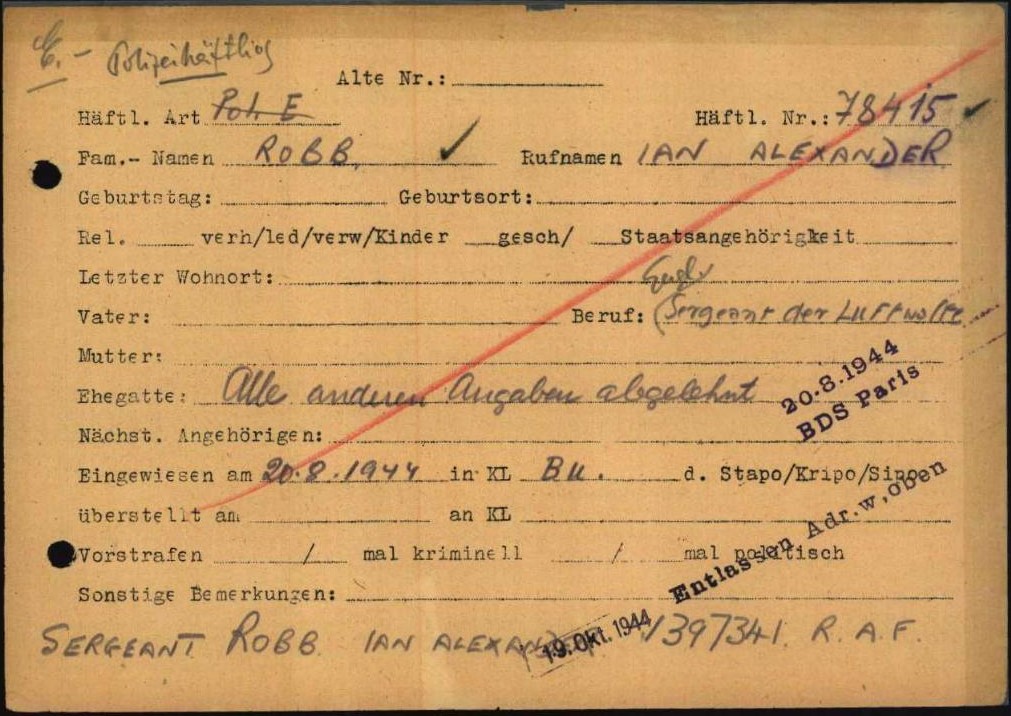 E. - Polizeihäftling
Alte Nr.:
Häftl. Art Pol. E Häftl. Nr.: 78415
Fam.- Namen ROBB. Rufnamen IAN ALEXANDER
Geburtstag: Geburtsort:
Rel. verh/led/verw/Kinder gesch/ Staatsangehörigkeit
Letzter Wohnort: Engl.
Vater: Beruf: (Sergeant der Luftwaffe
Mutter:
20.8.1944
BDS Paris
Ehegatte: Alle anderen Angaben abgelehnt
Nächst. Angehörigen:
Eingewiesen am 20.8.1944 in KL Bu. d. Stapo/Kripo/Sipo
überstellt am an KL
Vorstrafen / mal kriminell / mal politisch
Entlassen Adr.w,oben
Sonstige Bemerkungen:
19. Okt. 1944
SERGEANT ROBB IAN ALEXANDER 1397341. R.A.F.